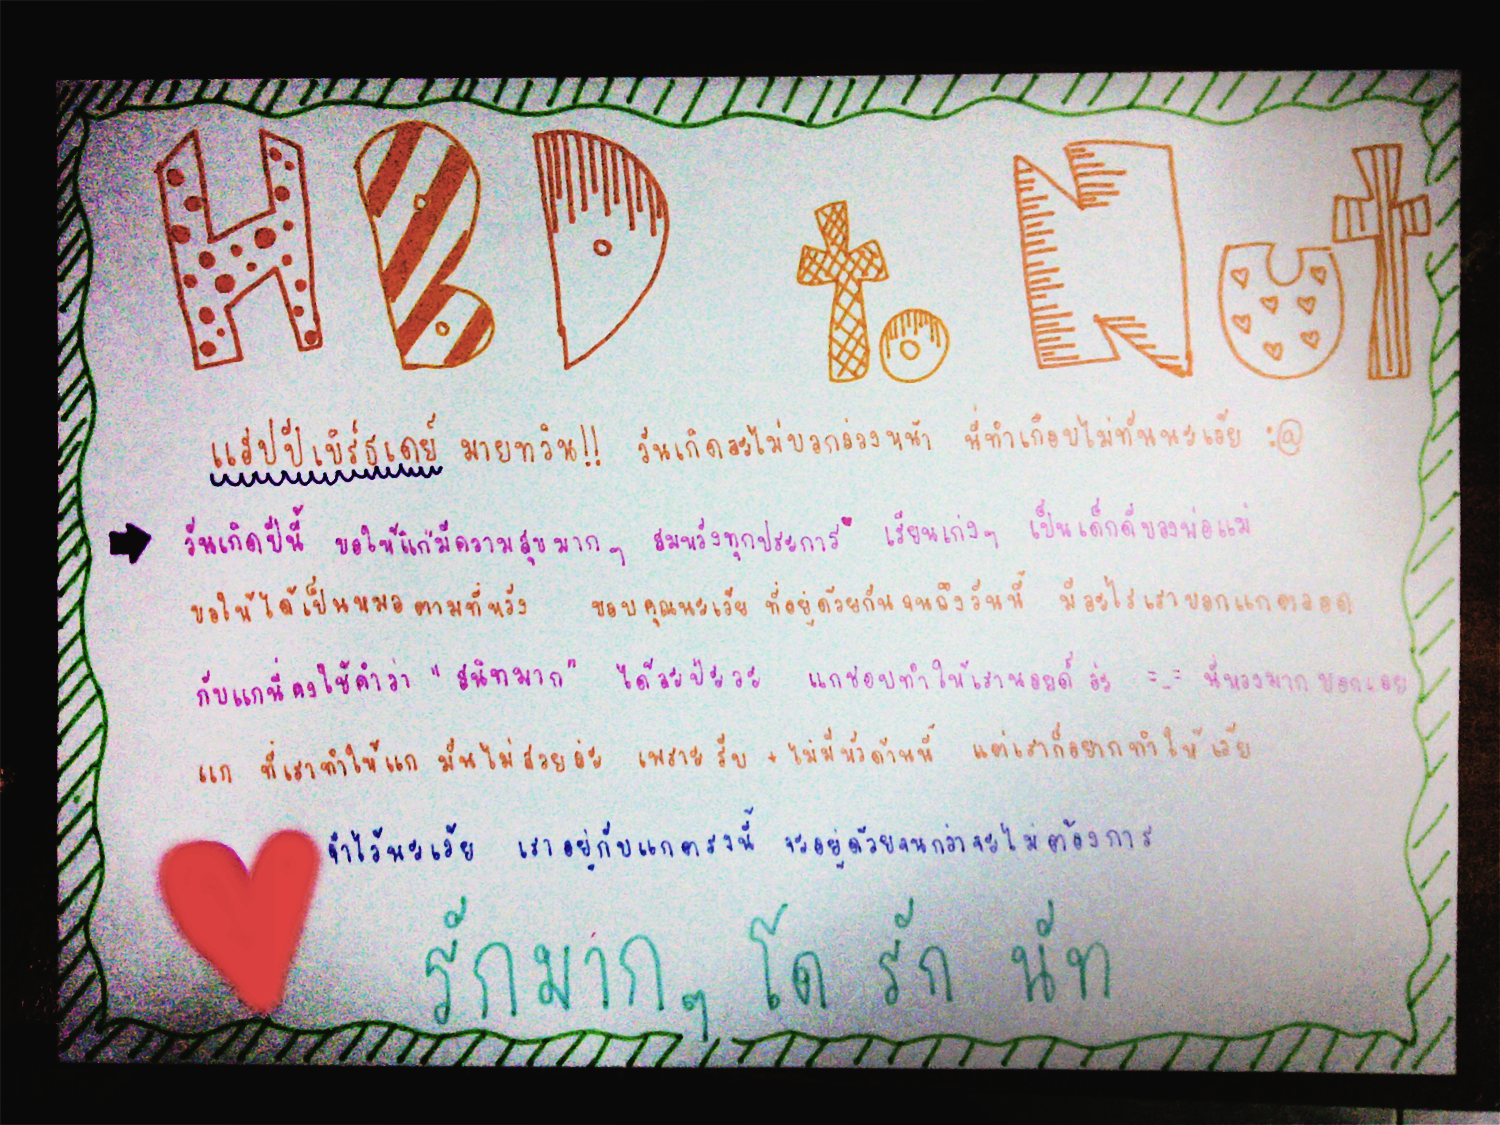 HBD to Nut
แฮปปีเบิร์ธเดย์ มายทวิน!! วันเกิดละไม่บอกล่วงหน้า นี่ทำเกือบไม่ทันนะเว้ย :@
วันเกิดปีนี้ ขอให้แก มีความสุขมากๆ สมหวังทุกประการ เรียนเก่งๆ เป็นเด็กดีของพ่อแม่
ขอให้ได้เป็นหมอตามที่หวัง ขอบคุณนะเว้ย ที่อยู่ด้วยกันจนถึงวันนี้ มีอะไรเราบอกแกตลอด
กับแกนี่คงใช้คำว่า "สนิทมาก" ได้ละป่ะวะ แกชอบทำให้เรานอยด์ อ่ะ =_= นี่หวงมาก บอกเลย
แก ที่เราทำให้แก มันไม่สวยอ่ะ เพราะรีบ + ไม่มีหัวด้านนี้ แต่เราก็อยากทำให้เว้ย
จำไว้นะเว้ย เราอยู่กับแกตรงนี้ จะอยู่ด้วยจนกว่าจะไม่ต้องการ
รักมากๆ โด รัก นัท